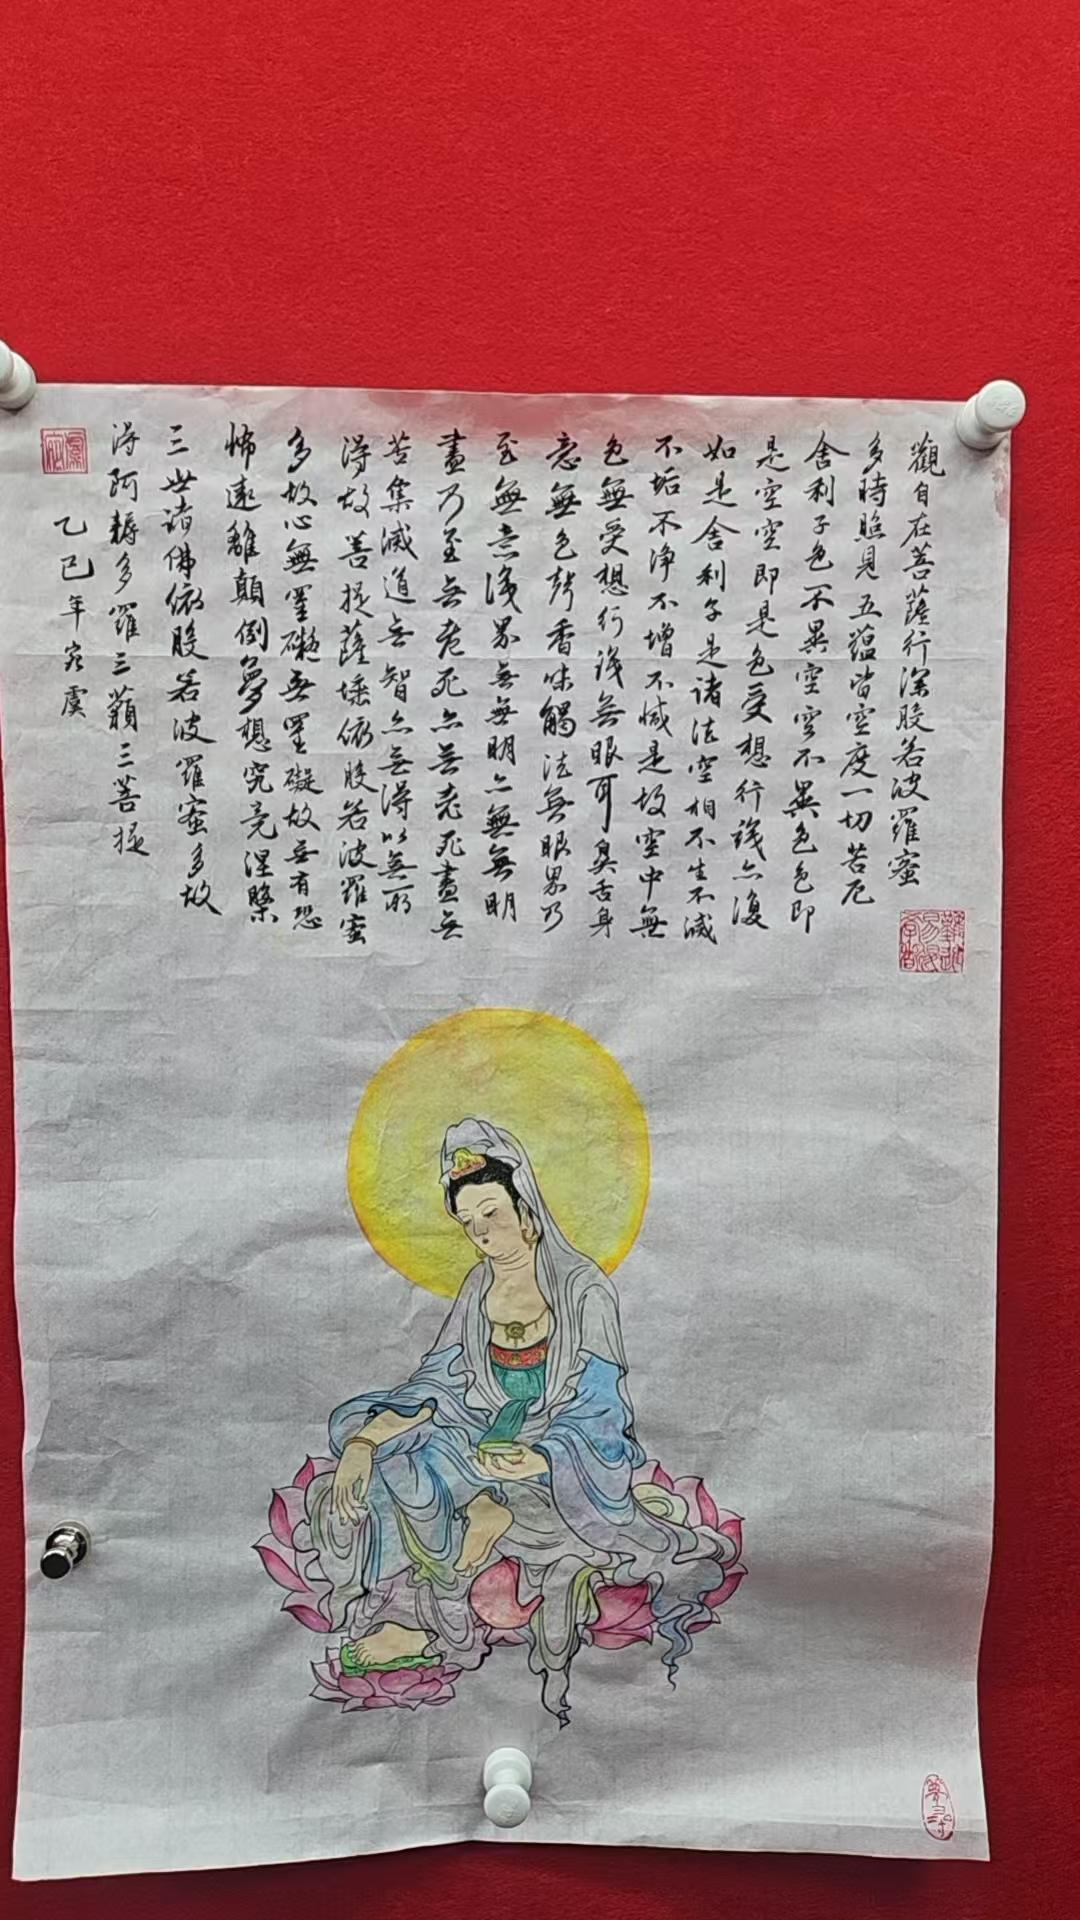 觀自在菩薩行深般若波羅蜜
多時照見五蘊皆空度一切苦厄
舍利子色不異空空不異色色即
是空空即是色受想行識亦復
如是舍利子是諸法空相不生不滅
不垢不淨不增不減是故空中無
色無受想行識無眼耳鼻舌身
意無色聲香味觸法無眼界乃
至無意識界無無明亦無無明
盡乃至無老死亦無老死盡無
苦集滅道無智亦無得以無所
得故菩提薩埵依般若波羅蜜
多故心無罣礙無罣礙故無有恐
怖遠離顛倒夢想究竟涅槃
三世諸佛依般若波羅蜜多故
得阿耨多羅三藐三菩提
乙巳年 虞